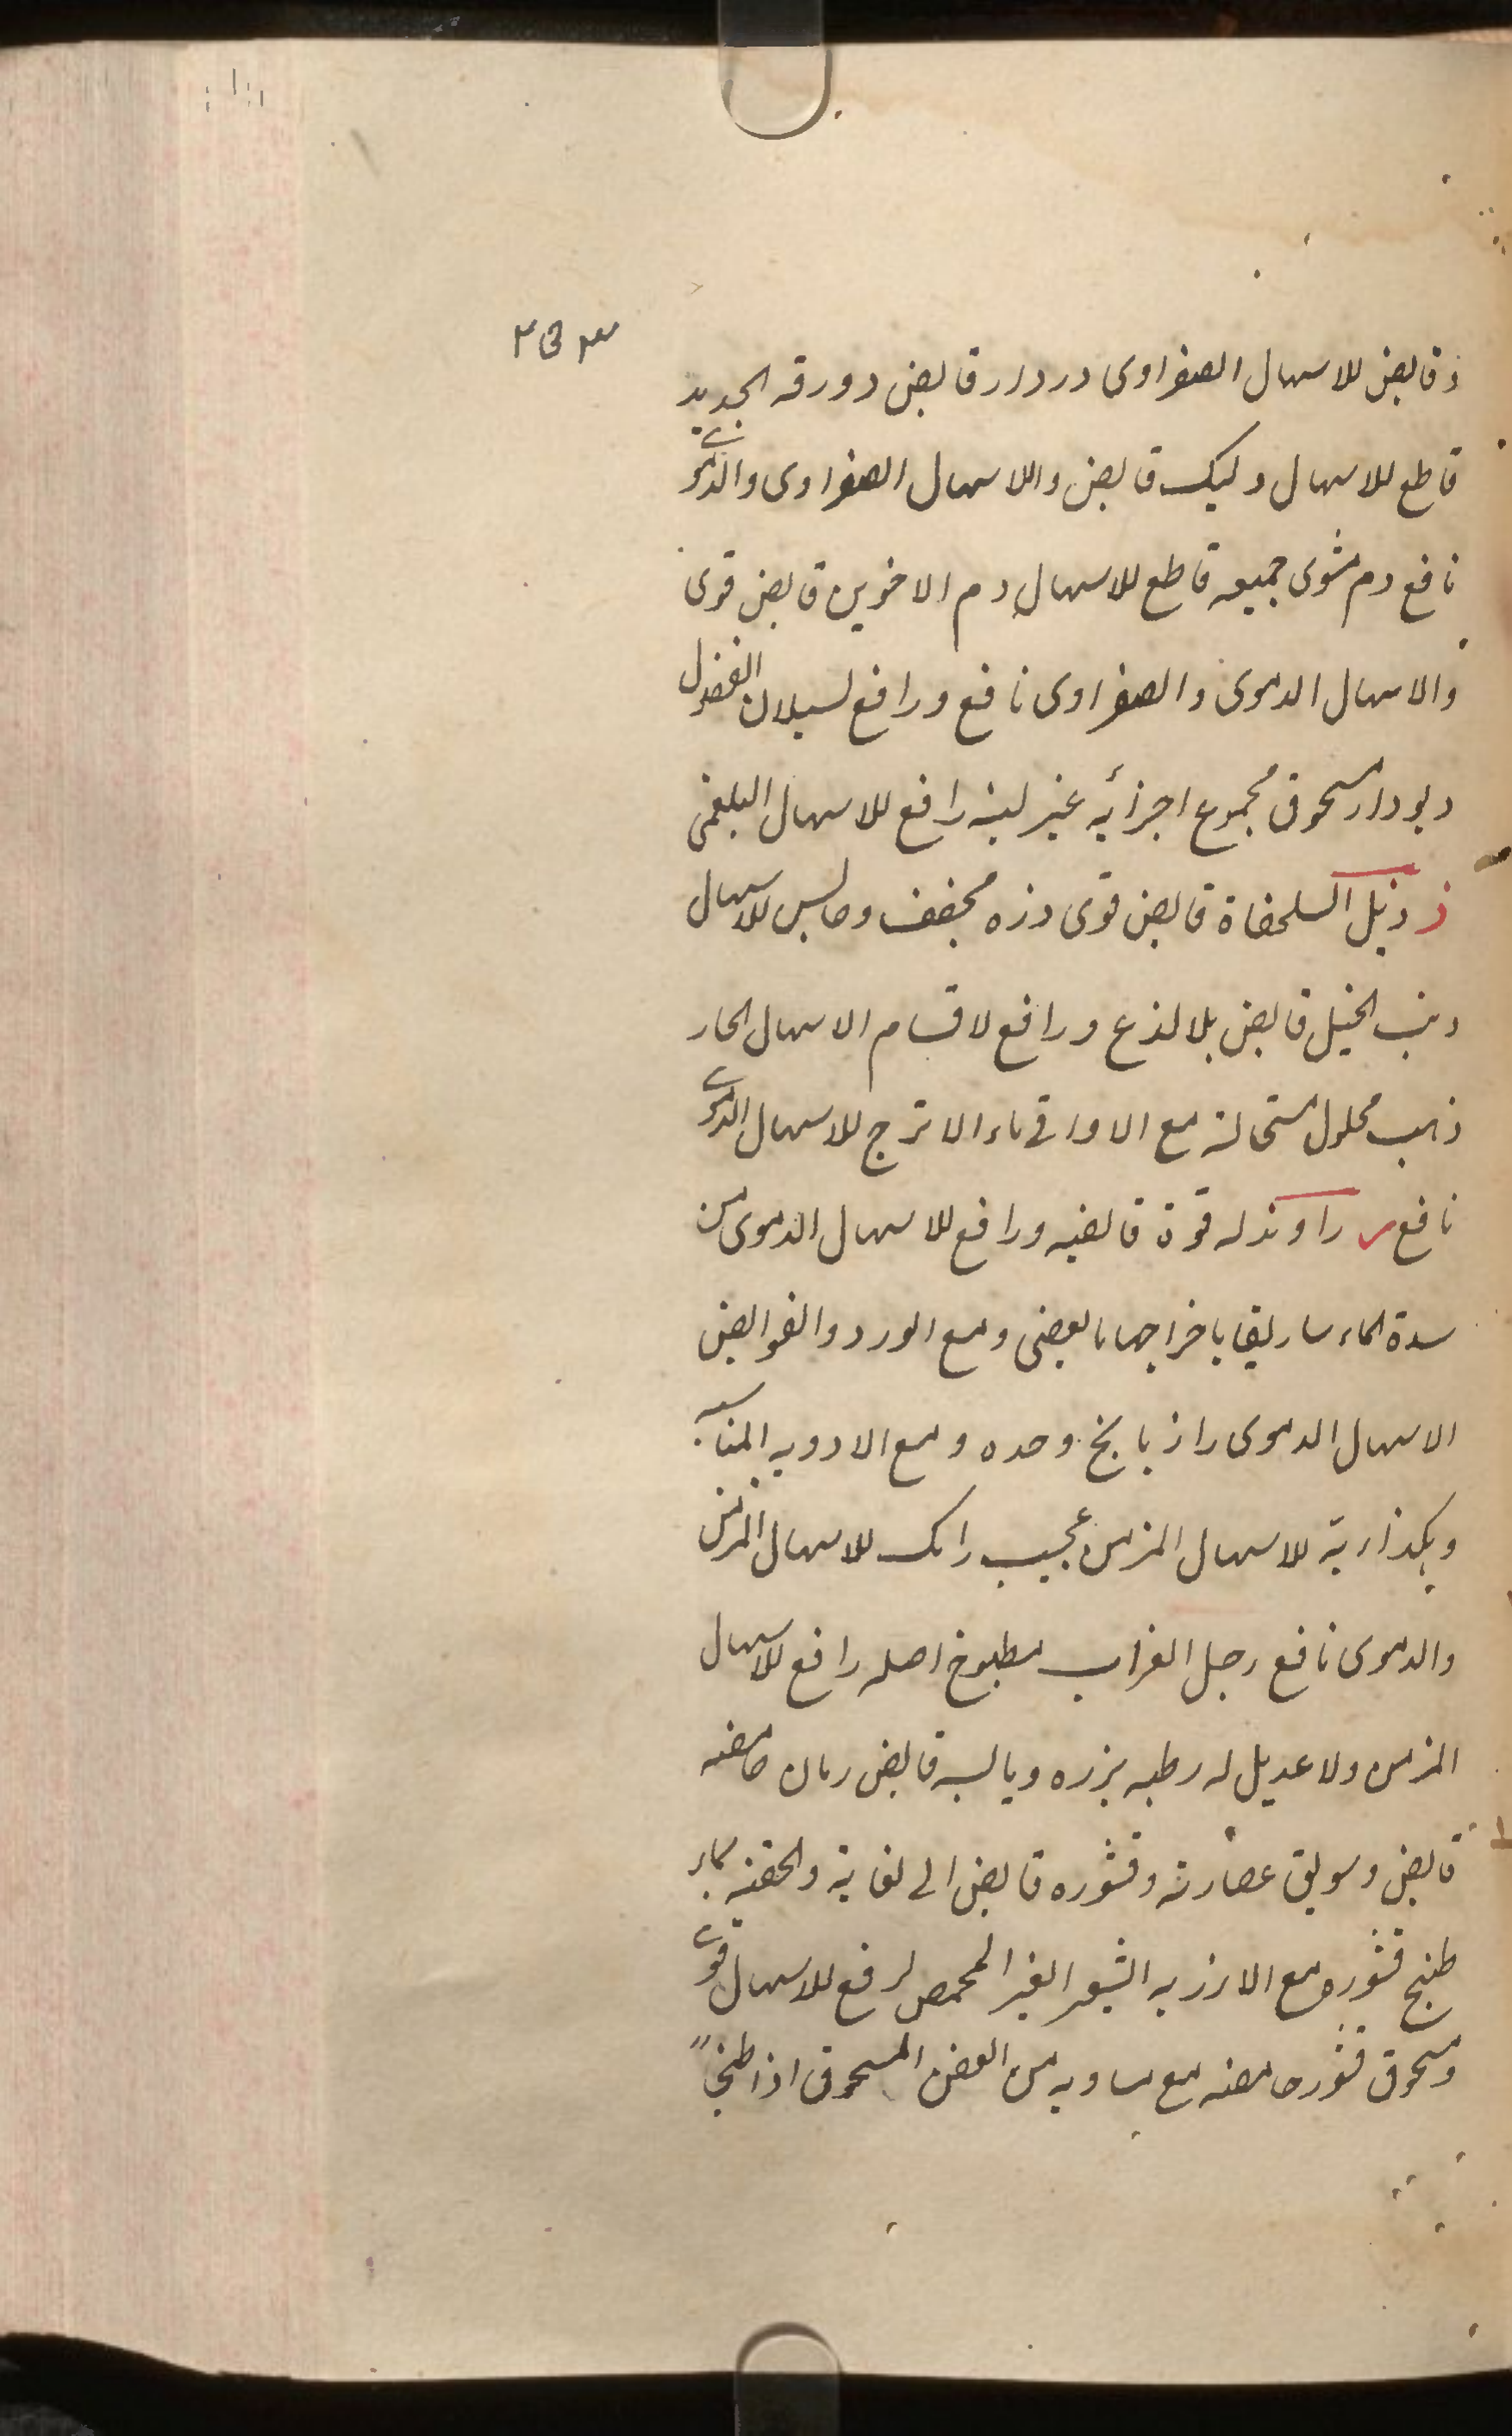 ۳۵۳
وقابض للاسهال الصفراوی دردار قابض دورقه الجدید
قاطع للاسهال دلیک قابض واللاسهال الصفراوی والدموی
نافع دم مشوی جمیعه قاطع للاسهال دم الاخوین قابض قوی
والاسهال الدموی والصفراوی نافع ورافع لسیلان الفضول
دیودار مسحوق مجموع اجزائه غیر لبنه رافع للاسهال البلغمی
ذ ذبل السلحفاة قابض قوی ذره مجفف وحابس للاسهال
ذنب الخیل قابض بلا لذع ورافع لاقسام الاسهال الحار
ذهب محلول مستحالة مع الاواقی ماء الاترج للاسهال الدموی
نافع ر راوند له قوة قابضیه ورافع للاسهال الدموی من
سدة الماساریقا باخراجها بالعرض ومع الورد والقوابض
الاسهال الدموی رازیانج وحده ومع الادویه المناسبه
وهکذا ربه للاسهال المزمن عجیب رامک للاسهال المزمن
والدموی نافع رجل الغراب مطبوخ اصله رافع للاسهال
المزمن ولا عدیل له رطبه بزره ویابسه قابض رمان حامضه
قابض وسویق عصارته وقشوره قابض الی لغایة والحقنه بماء
طبخ قشوره مع الارز به الشعیر الغیر المحمص لرفع للاسهال قوی
ومسحوق قشور حامضه مع مساویه من العفص المسحوق اذا طبخا